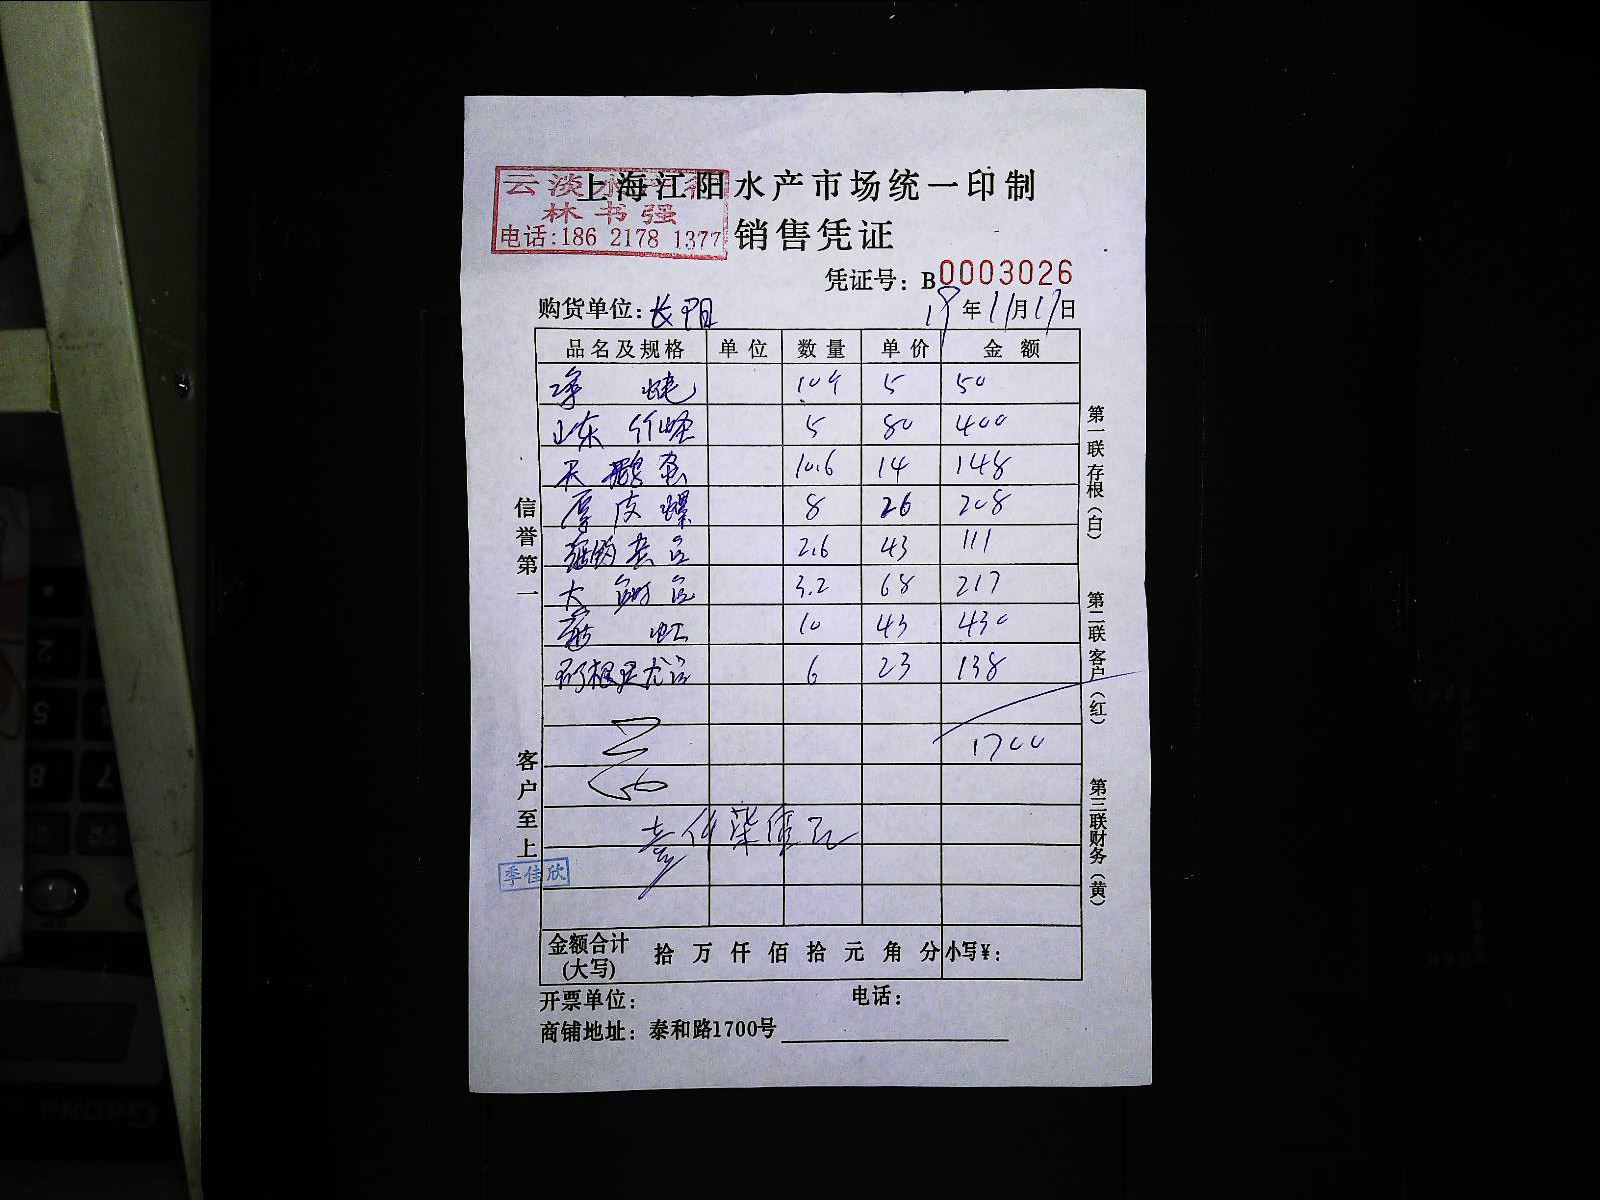 上海江阳水产市场统一印制
云淡水产行
林书强
电话:186 2178 1377
销售凭证
凭证号: B0003026
购货单位: 长阳 19年11月17日
品名及规格 单位 数量 单价 金额
净 10个 5 50
山东竹蛏 5 80 400
天鹅蛋 10.6 14 148
厚皮螺 8 26 208
2.6 43 111
大 3.2 68 217
10 43 430
6 23 138
1700
壹仟柒佰元
信誉第一
客户至上
季佳欣
第一联存根(白)
第二联客户(红)
第三联财务(黄)
金额合计(大写) 拾 万 仟 佰 拾 元 角 分 小写¥:
开票单位: 电话:
商铺地址: 泰和路1700号